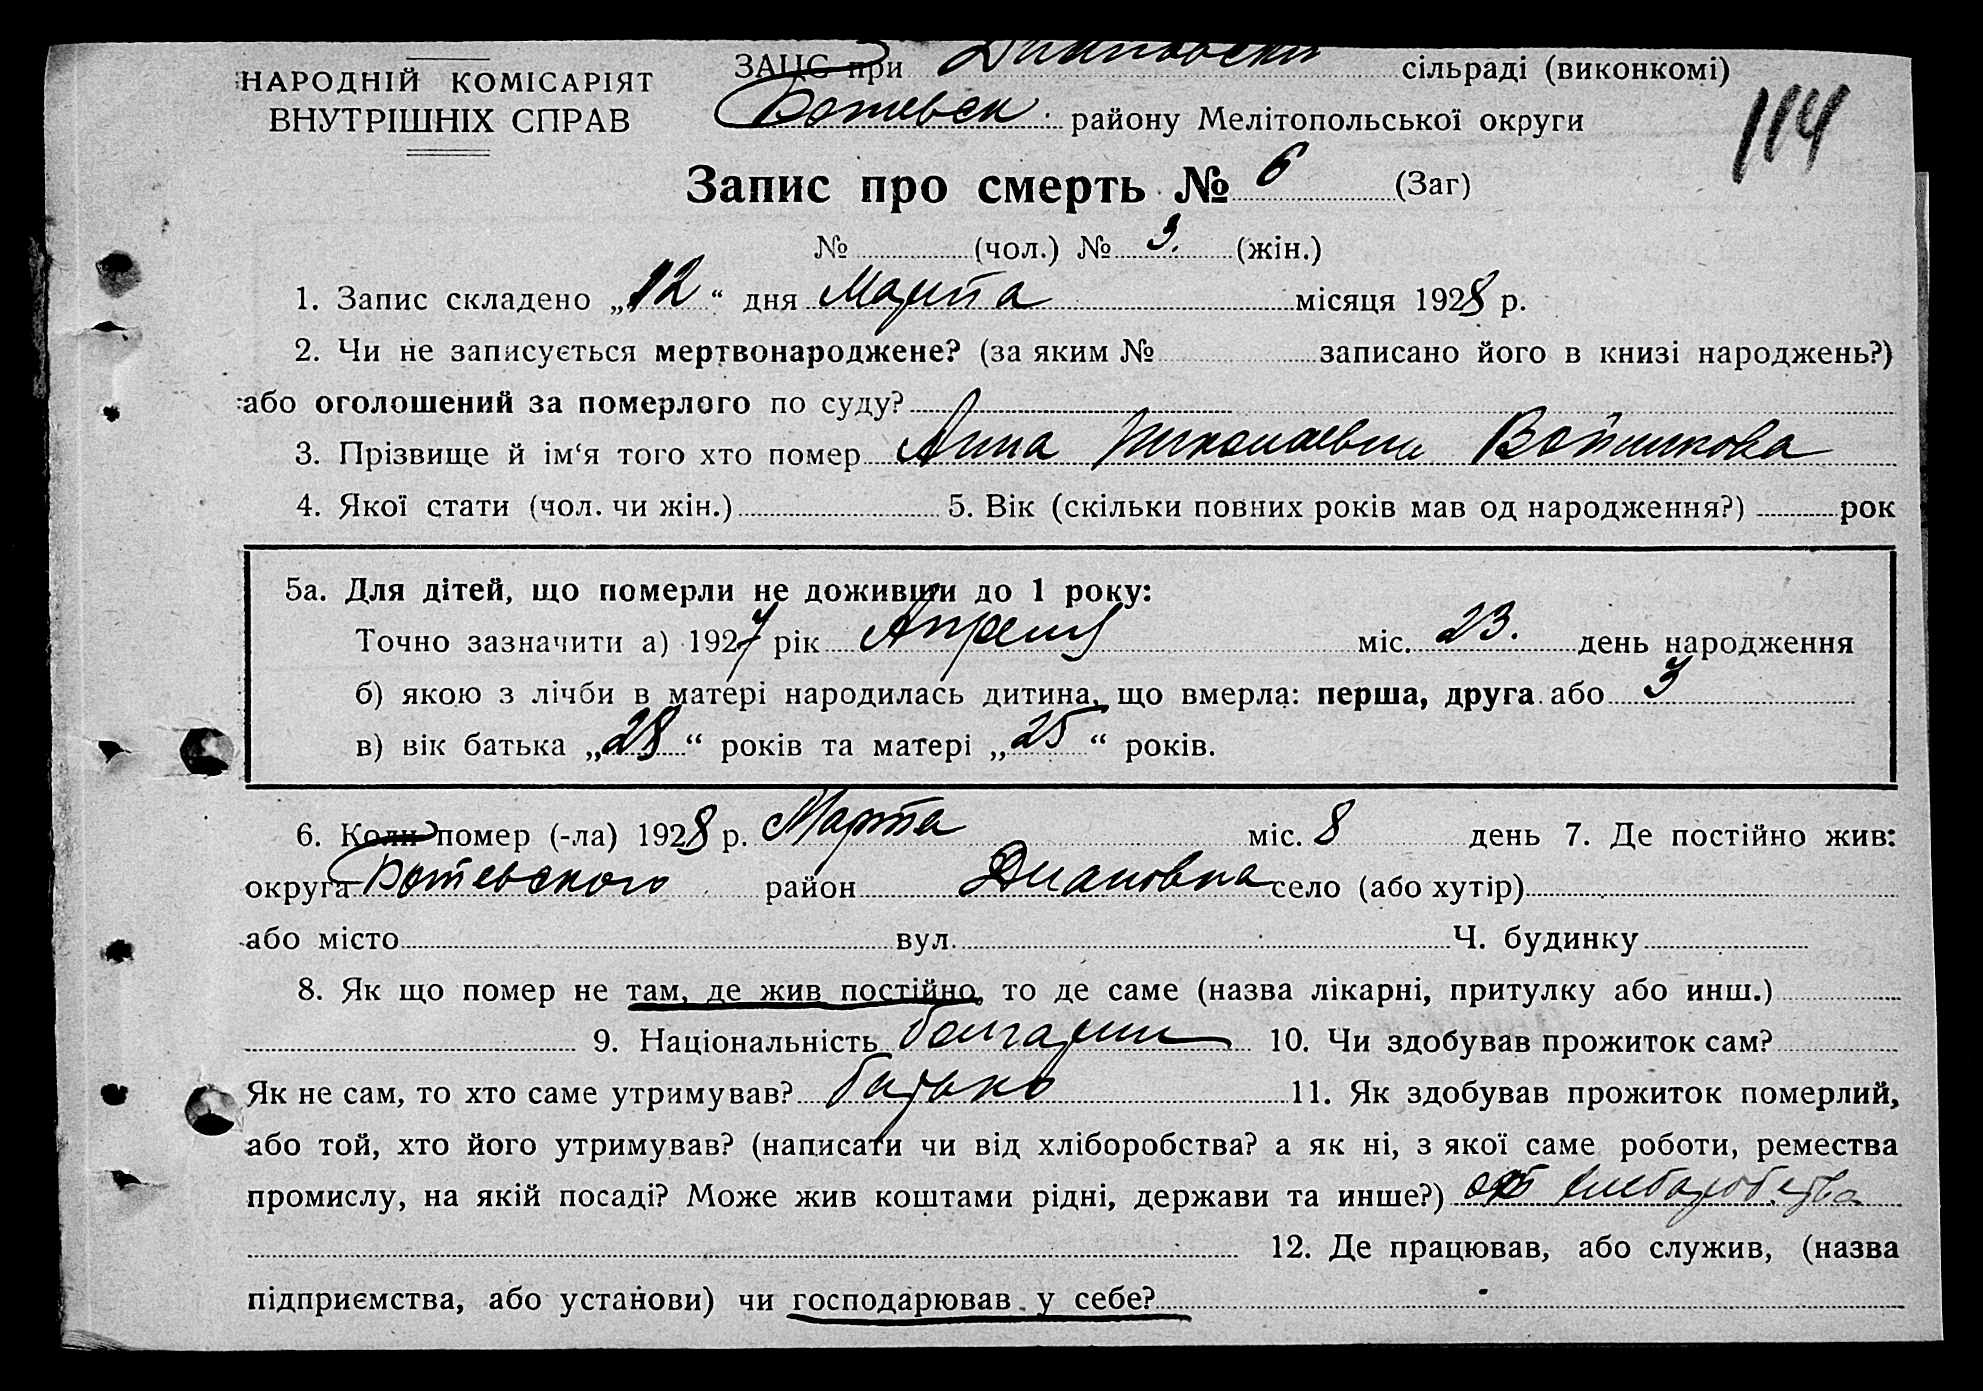 НАРОДНІЙ КОМІСАРІЯТ
ВНУТРІШНІХ СПРАВ
ЗАЦС при Диановском сільраді (виконкомі)
Ботевск. району Мелітопольської округи
114
Запис про смерть № 6 (Заг)
№ (чол.) № 3. (жін.)
1. Запис складено „12“ дня Марта місяця 1928 р.
2. Чи не записується мертвонароджене? (за яким № записано його в книзі народжень?)
або оголошений за померлого по суду?
3. Прізвище й ім‘я того хто помер Анна Николаевна Войникова
4. Якої стати (чол. чи жін.) 5. Вік (скільки повних років мав од народження?) рок
5а. Для дітей, що померли не доживши до 1 року:
Точно зазначити а) 1927 рік Апреля міс. 23. день народження
б) якою з лічби в матері народилась дитина, що вмерла: перша, друга або 3
в) вік батька „28“ років та матері „25“ років.
6. Коли помер (-ла) 1928 р. Марта міс. 8 день 7. Де постійно жив:
округа Ботевского район Диановка село (або хутір)
або місто вул. Ч. будинку
8. Як що помер не там, де жив постійно, то де саме (назва лікарні, притулку або инш.)
9. Національність болгарин 10. Чи здобував прожиток сам?
Як не сам, то хто саме утримував? батько 11. Як здобував прожиток померлий,
або той, хто його утримував? (написати чи від хліборобства? а як ні, з якої саме роботи, ремества
промислу, на якій посаді? Може жив коштами рідні, держави та инше?) от хлеборобства
12. Де працював, або служив, (назва
підприємства, або установи) чи господарював у себе?